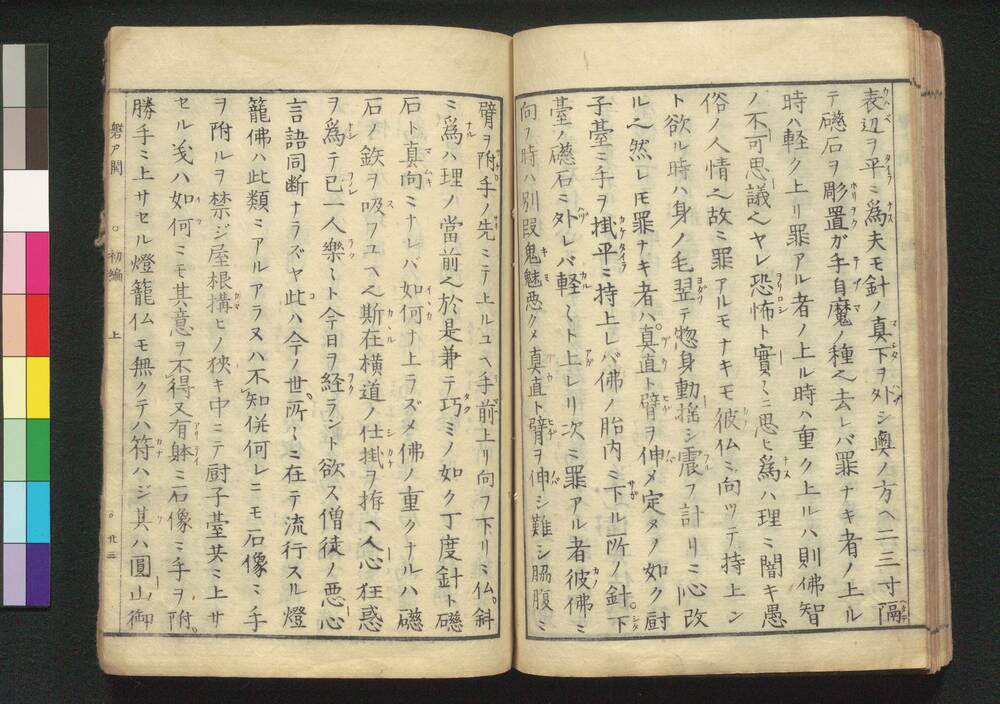 表辺ヲ平ミ為夫モ針ノ真下ヲハヅシ奥ノ方ヘ二三寸隔
テ礠石ヲ彫置ガ手自魔ノ種也去レバ罪ナキ者ノ上ル
時ハ軽ク上リ罪アル者ノ上ル時ハ重ク上ルハ則佛智
ノ不可思議也ヤレ恐怖ト實ミニ思ヒ為ハ理ミ闇キ愚
俗ノ人情也故ミ罪アルモナキモ彼仏ミ向ツテ持上ン
ト欲ル時ハ身ノ毛翌テ惣身動揺シ震フ計リミ心改
ル也然レモ罪ナキ者ハ真直ト臂ヲ伸メ定メノ如ク厨
子臺ミ手ヲ掛平ミ持上レバ佛ノ胎内ミ下ル所ノ針下
臺ノ礠石ミ外レバ軽ミト上レリ次ミ罪アル者彼佛ミ
向フ時ハ別段鬼魅悪クメ真直ト臂ヲ伸シ難シ脇腹ミ
臂ヲ附手ノ先ミテ上ルユヘ手前上リ向フ下リミ仏斜
ミ為ハ理ノ當前也於是兼テ巧ミノ如ク丁度針ト礠
石ト真向ミナレバ如何ナ上ラズメ佛ノ重クナルハ礠
石ノ鉄ヲ吸フユヘ也斯在横道ノ仕掛ヲ拵ヘ人心狂惑
ヲ為テ已一人樂ミト今日ヲ経ラント欲ス僧徒ノ悪心
言語同断ナラズヤ此ハ今ノ世所ミニ在テ流行スル燈
籠佛ハ此類ミアルアラヌハ不知併何レニモ石像ミ手
ヲ附ルヲ禁ジ屋根搆ヒノ狹キ中ミテ厨子臺共ミ上サ
セル㳒ハ如何ニモ其意ヲ不得又有躰ミ石像ミ手ヲ附
勝手ミ上サセル燈籠仏モ無クテハ符ハジ其ハ圓山御
磐戸開 ○初編 上 ○廿三